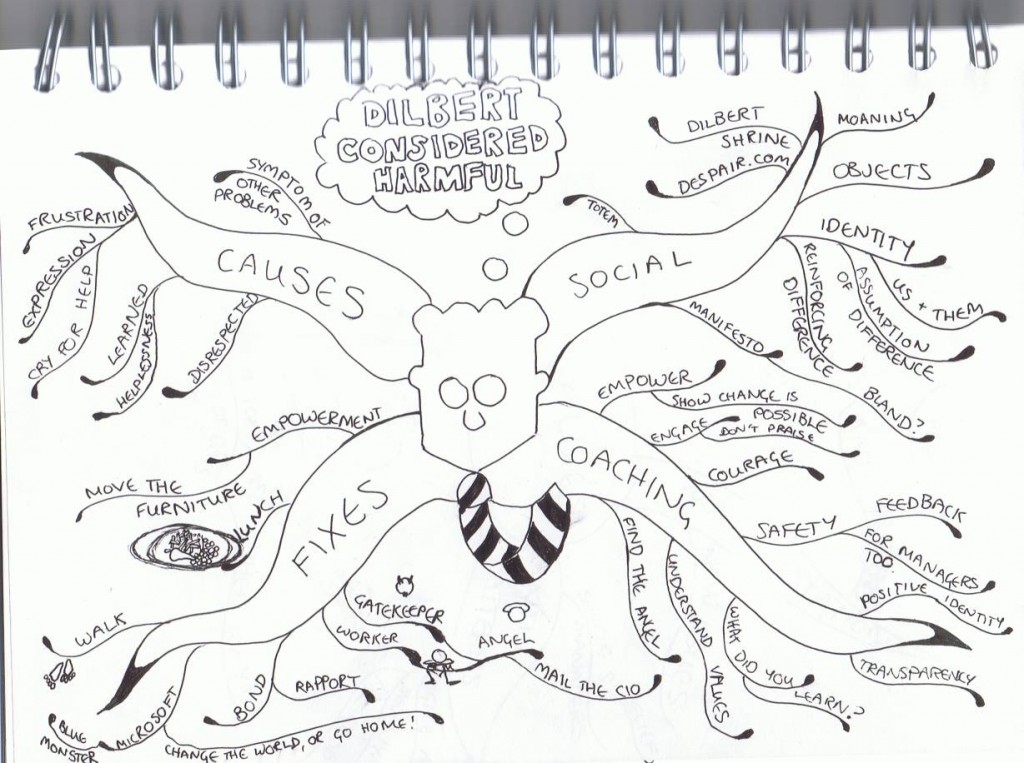 DILBERT
CONSIDERED
HARMFUL
CAUSES
SYMPTOM OF
OTHER
PROBLEMS
FRUSTRATION
EXPRESSION
CRY FOR HELP
LEARNED
HELPLESSNESS
DISRESPECTED
SOCIAL
TOTEM
DILBERT
SHRINE
DESPAIR.COM
MOANING
OBJECTS
IDENTITY
US + THEM
ASSUMPTION
OF
DIFFERENCE
REINFORCING
DIFFERENCE
MANIFESTO
BLAND?
COACHING
EMPOWER
SHOW CHANGE IS
POSSIBLE
ENGAGE
DON'T PRAISE
COURAGE
SAFETY
FEEDBACK
FOR MANAGERS
TOO.
POSITIVE IDENTITY
TRANSPARENCY
WHAT DID YOU
LEARN?
UNDERSTAND VALUES
FIND THE ANGEL
FIXES
EMPOWERMENT
MOVE THE
FURNITURE
LUNCH
WALK
MICROSOFT
BLUE
MONSTER
CHANGE THE WORLD, OR GO HOME!
BOND
RAPPORT
GATEKEEPER
WORKER
ANGEL
MAIL THE CIO